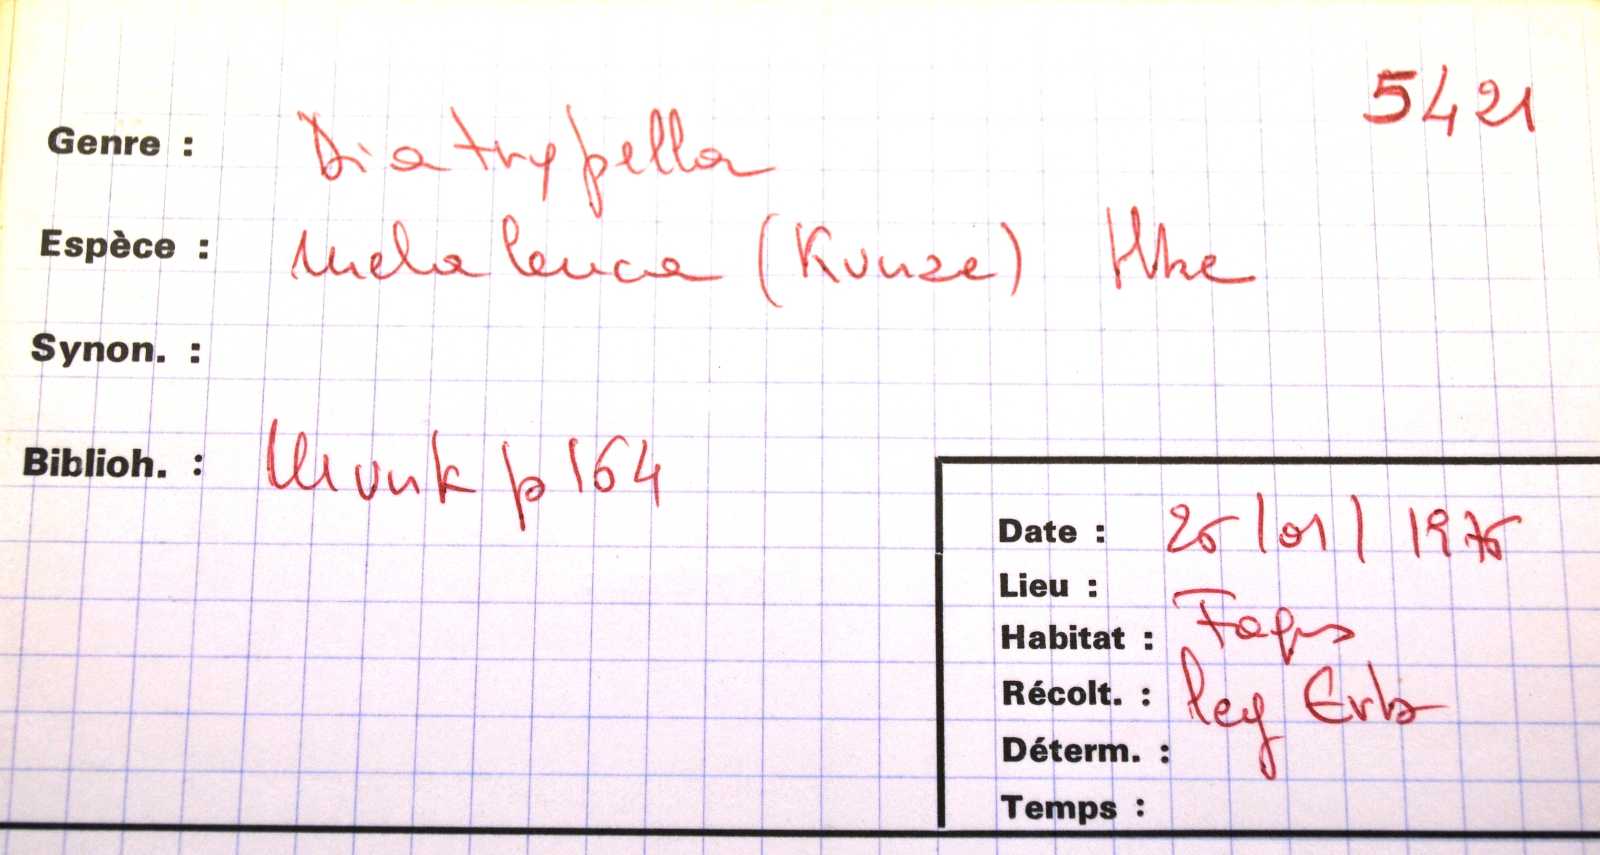 5421
Genre : Diatrypella
Espèce : melaleuca (Kunze) Nke
Synon. :
Biblioh. : Munk p 164
Date : 25/01/1976
Lieu :
Habitat : Fagus
Récolt. : leg Erb
Déterm. :
Temps :